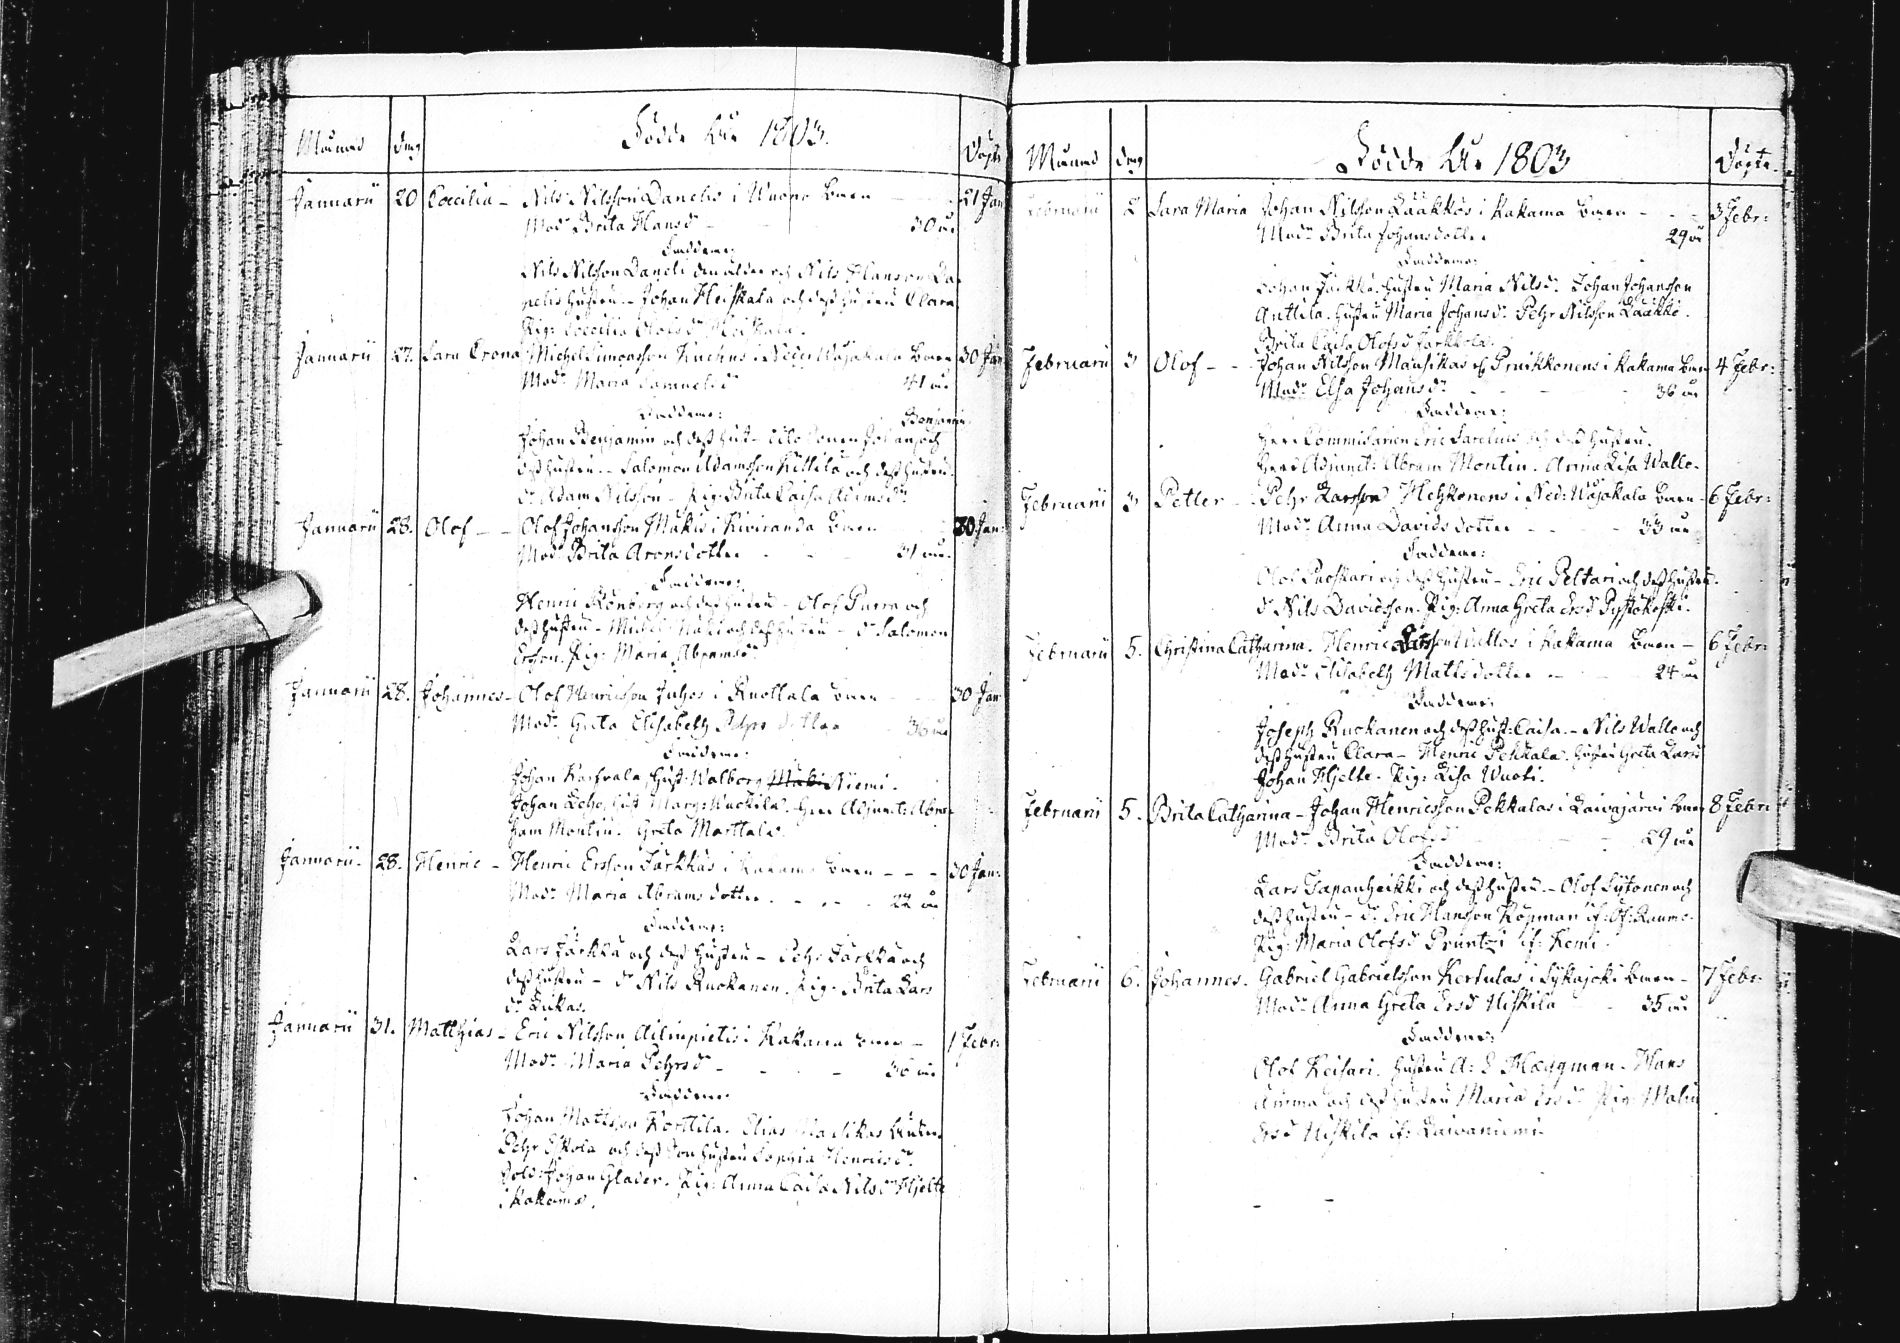 Månad dag Födde År 1803. Döpte
Januarii 20 Cæcilia - Nils Nilsson Danelis i Wuono barn 21 Jan
Mod: Brita Hansd: 30 år
Faddrar:
Nils Nilsson Daneli den äldre och Nils Hansson Da-
nelis hustru - Johan Heiskala och dess hustru Clara
Pig: Cæcilia Olofsd:
Januarii 27. Sara Johan Michel Simonsson i Neder Wojakala barn 30 Jan
Mod: Maria Samuelsd: 41 år
Faddrar: Benjamin
Johan Benjamin och dess hust- Johan och
dess hustru - Salomon Adamsson Kittilä och dess hustru
D: Adam Nilsson - Pig: Brita Caisa Adamsd:
Januarii 28. Olof - Olof Johansson Mäkis i Kiviranda barn 30 Jan:
Mod: Brita Aronsdotter 31 år
Faddrar:
Henric Rönberg och dess hustru - Olof Purra och
dess hustru - Michel och dess hustru - D: Salomon
Ersson. Pig: Maria Abramsd:
Januarii 28. Johannes - Olof Henricsson Juhos i Ruottala barn 30 Jan
Mod: Greta Elisabeth Pehrsdotter 36 år
Faddrar:
Johan hust: Walborg Niemi.
Johan hust Marg: Herr Adjunct: Abra-
ham Montin. Greta Marttala.
Januarii - 28. Henric - Henric Ersson Järkkäs i Kakama barn - - - 30 Jan:
Mod: Maria Abramsdotter 22 år
Faddrar:
Lars Järkkä och dess hustru - Pehr Järkkä och
dess hustru - D: Nils Ruokanen. Pig: Brita Lars
D:
Januarii 31. Matthias - Eric Nilsson Ailinpietis i Kakama barn - 1 Febr:
Mod: Maria Pehrsd: 36 år
Faddrar:
Johan Mattsson Korttila. Elias
Pehr Eskola och dess Son hustru Sophia Henricsd:
Sold: Johan Glader. Pig: Anna Caisa Nilsd: Hjelte
i Kakama.
Månad dag Födde År 1803 Döpte
Februarii 2 Sara Maria Johan Nilsson Lääkkös i Kakama barn 3 Febr:
Mod: Brita Johansdotter 29 år
Faddrar:
Johan Järkkä. hustru Maria Nilsd: Johan Johansson
Anttila. hustru Maria Johansd: Pehr Nilsson Lääkkö.
Brita Caisa Olofsd Järkkälä.
Februarii 3 Olof - - Johan Nilsson Mausikas el: Pruikkonens i Kakama barn 4 Febr:
Mod: Elsa Johansd: 36 år
Faddrar:
Herr Commisarien Eric Sarelius och dess hustru.
Herr Adjunct: Abram Montin. Anna Lisa Walle.
Februarii 3 Petter - Pehr Larsson Hetzkonens i Ned: Wojakala barn - 6 Febr:
Mod: Anna Davidsdotter 33 år
Faddrar:
Olof och dess hustru - Eric Peltari och dess hustru.
D: Nils Davidsson. Pig: Anna Greta Ersd
Februarii 5. Christina Catharina. Henric i Kakama barn - 6 Febr:
Mod: Elisabeth Mattsdotter 24 år
Faddrar:
Joseph Ruokanen och dess hust: Caisa. - Nils Walle och
dess hustru Clara - Henric Pekkala. hustru Greta Larsd:
Johan Hjelte - Pig: Lisa Wuoti.
Februarii 5. Brita Catharina - Johan Henricsson Pekkalas i Laivajärvi barn 8 Febr:
Mod: Brita Olofsd 29 år
Faddrar:
Lars Tapanheikki och dess hustru. - Olof Sytonen och
dess hustru - D: Eric Hansson Köpman if:
Pig: Maria Olofsd Pruntzi if: Kemi.
Februarii 6. Johannes. Gabriel Gabrielsson Kertulas i Lykajoki barn - 7 Febr:
Mod: Anna Greta Ersd Niskila 35 år
Faddrar:
Olof Keisari. hustru A: E Hæggman. Hans
och dess hustru Maria Ersd: Pig: Malin
Ersd Niskila if: Laivaniemi